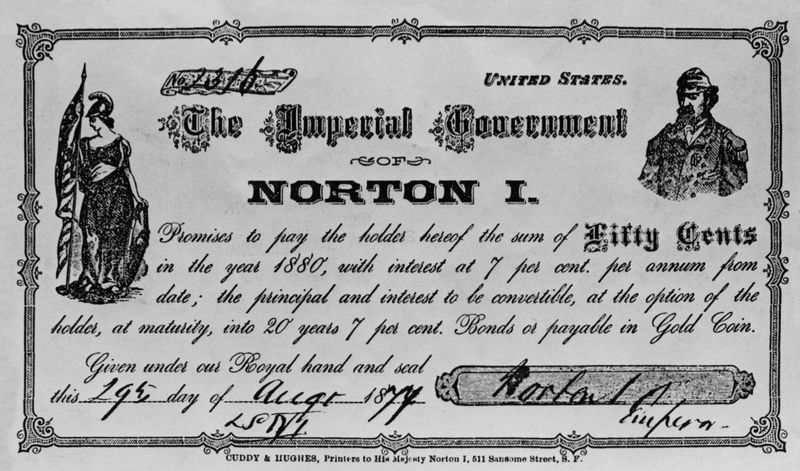 No. 1316
UNITED STATES.
The Imperial Government
OF
NORTON I.
Promises to pay the holder hereof the sum of Fifty Cents
in the year 1880, with interest at 7 per cent. per annum from
date; the principal and interest to be convertible, at the option of the
holder, at maturity, into 20 years 7 per cent. Bonds or payable in Gold Coin.
Given under our Royal hand and seal
this 29th day of Augt 1877
Norton I
Emperor
CUDDY & HUGHES, Printers to His Majesty Norton I, 511 Sansome Street, S. F.